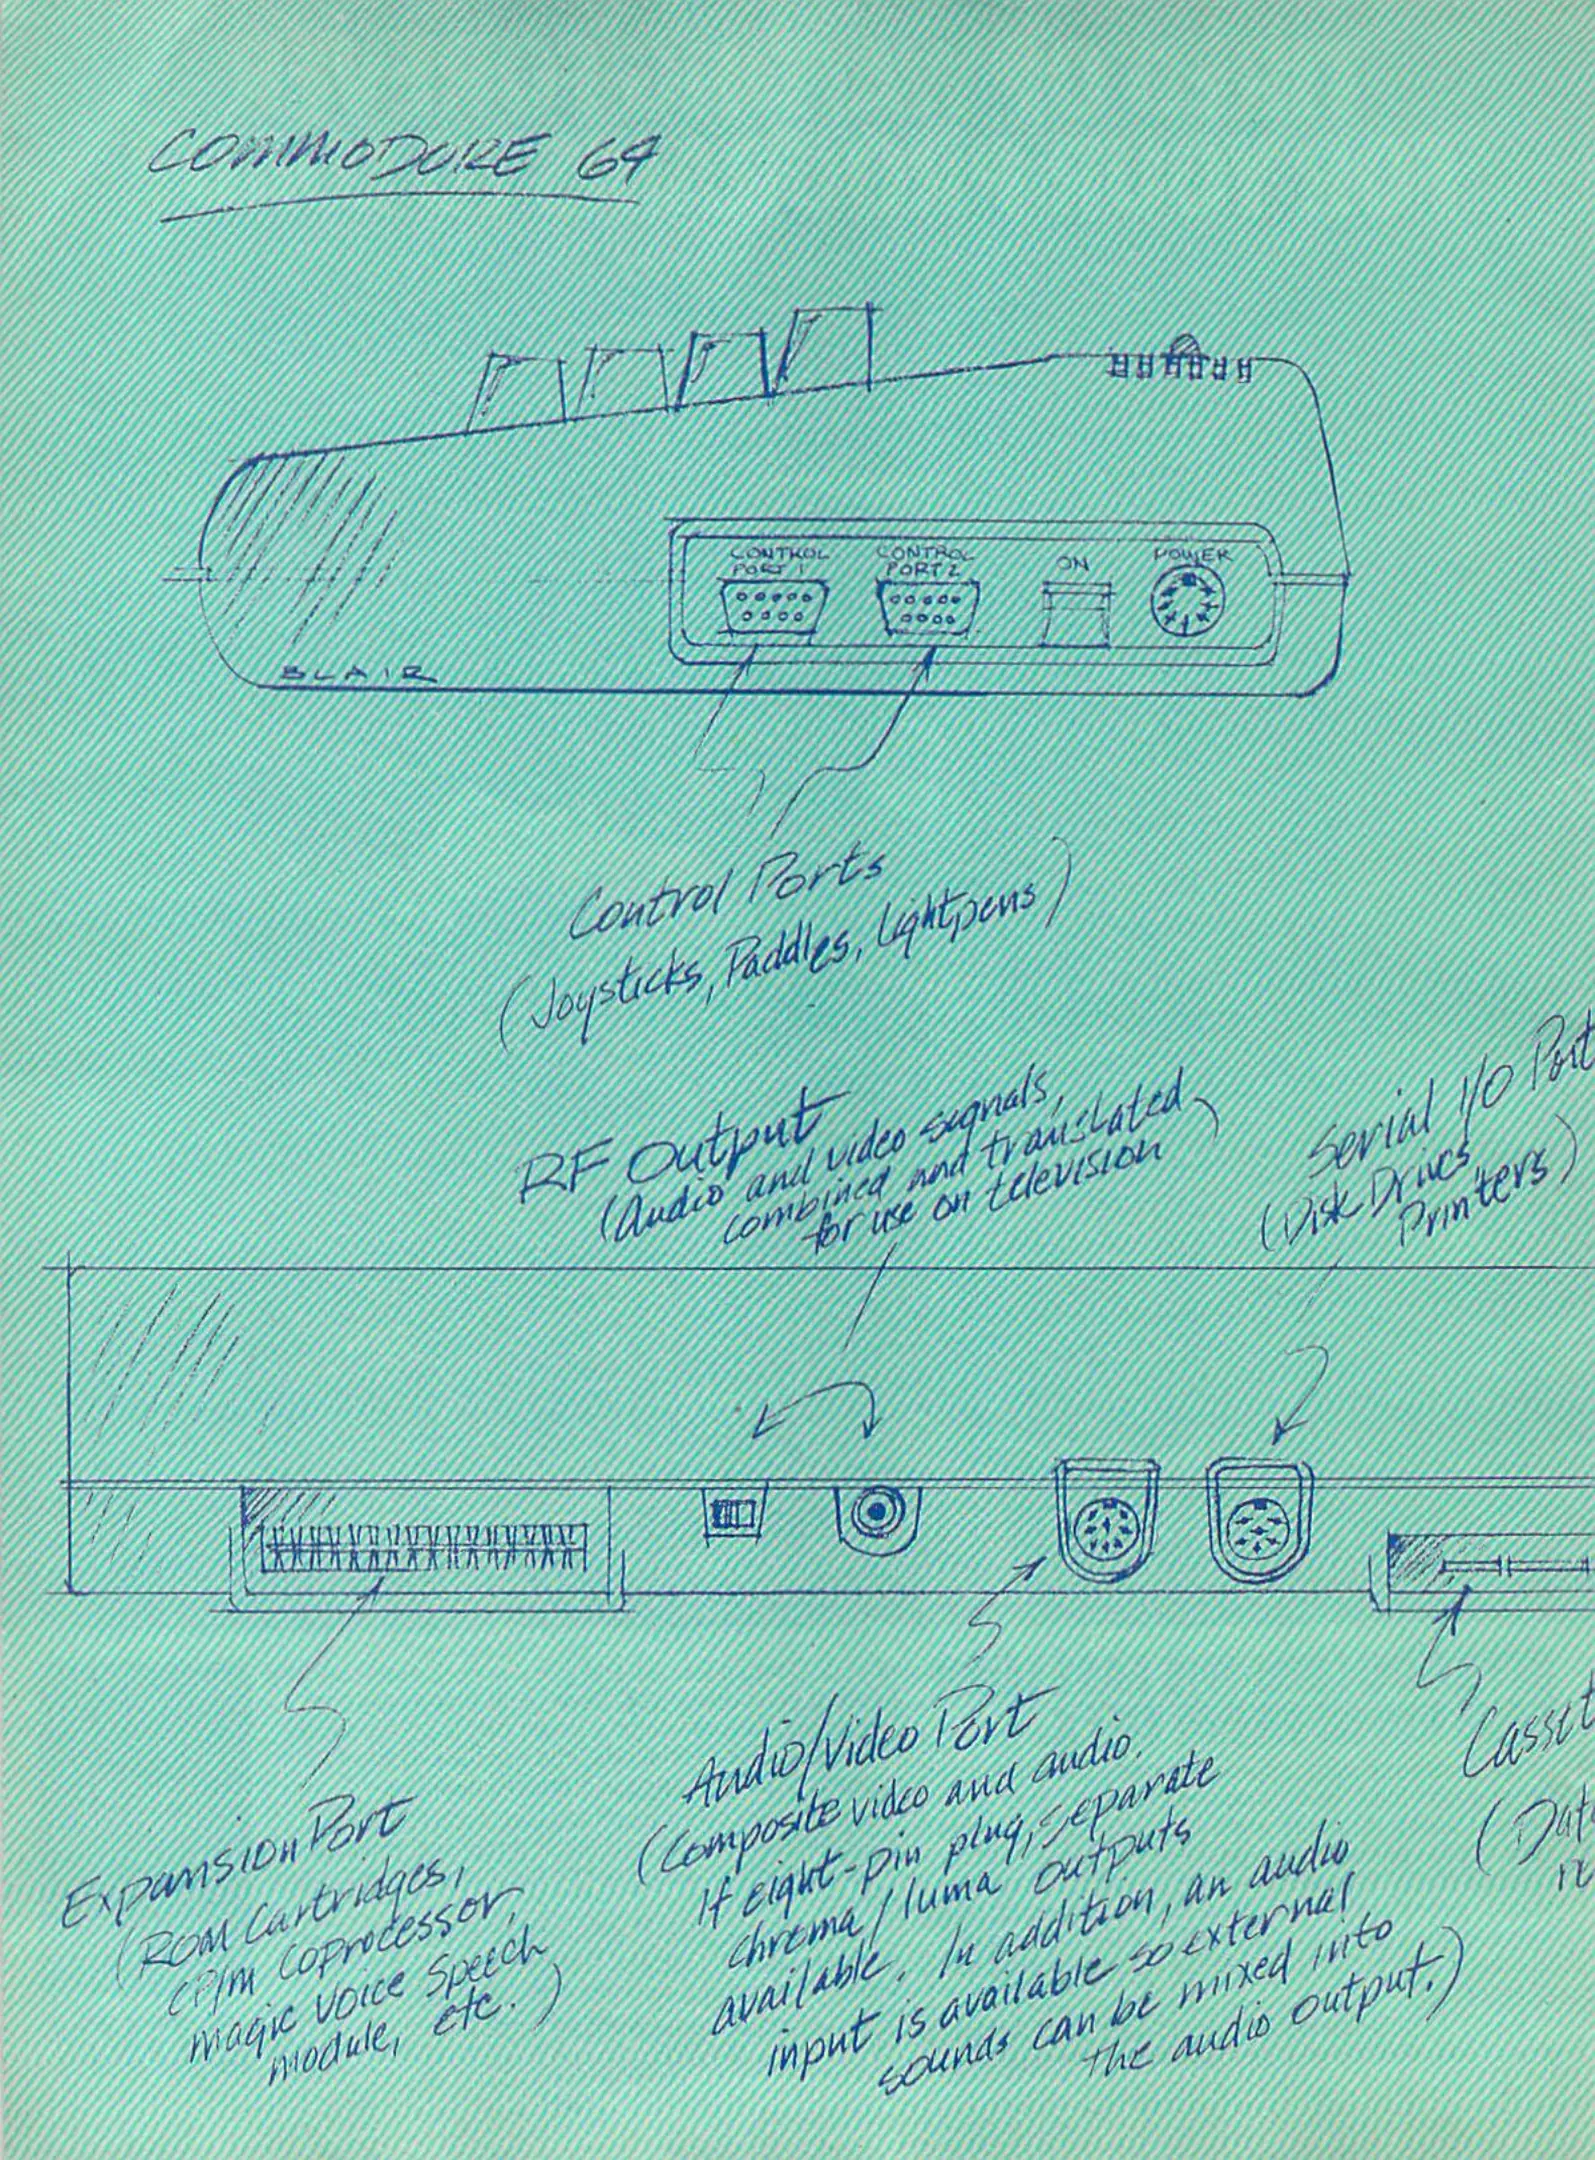 COMMODORE 64
CONTROL
PORT 1
CONTROL
PORT 2
ON
POWER
BLAIR
Control Ports
(Joysticks, Paddles, Lightpens)
RF Output
(Audio and video signals,
combined and translated
for use on television)
Serial I/O Port
(Disk Drives
Printers)
Expansion Port
(ROM Cartridges,
CP/M Coprocessor,
Magic Voice Speech
module, etc.)
Audio/Video Port
(Composite video and audio.
If eight-pin plug, separate
chroma/luma outputs
available. In addition, an audio
input is available so external
sounds can be mixed into
the audio output.)
Casset
(Dat
re